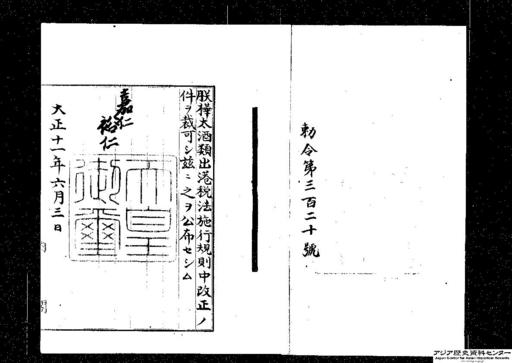 勅令第三百二十號
朕樺太酒類出港税法施行規則中改正ノ
件ヲ裁可シ玆ニ之ヲ公布セシム
嘉仁
裕仁
天皇御璽
大正十一年六月三日
内閣
アジア歴史資料センター
Japan Center for Asian Historical Records